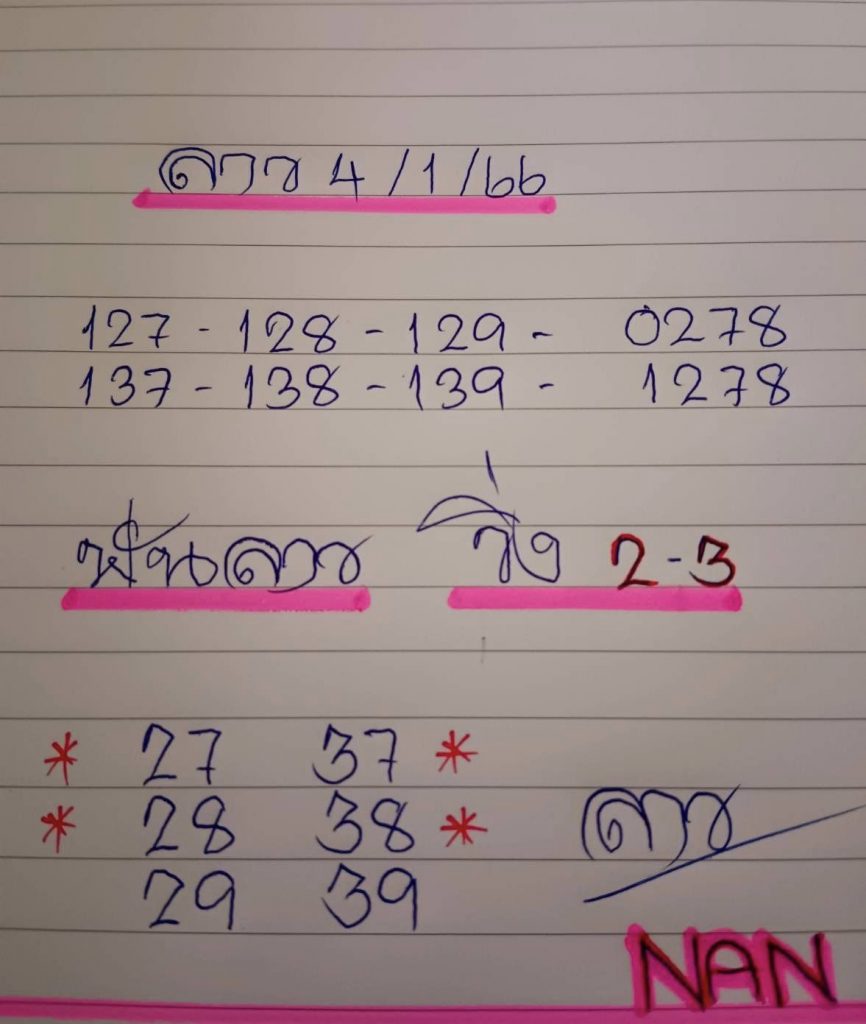 ลาว 4/1/66
127 - 128 - 129 - 0278
137 - 138 - 139 - 1278
ฟันลาว วิ่ง 2-3
* 27 37 *
* 28 38 *
29 39
ลาว
NAN